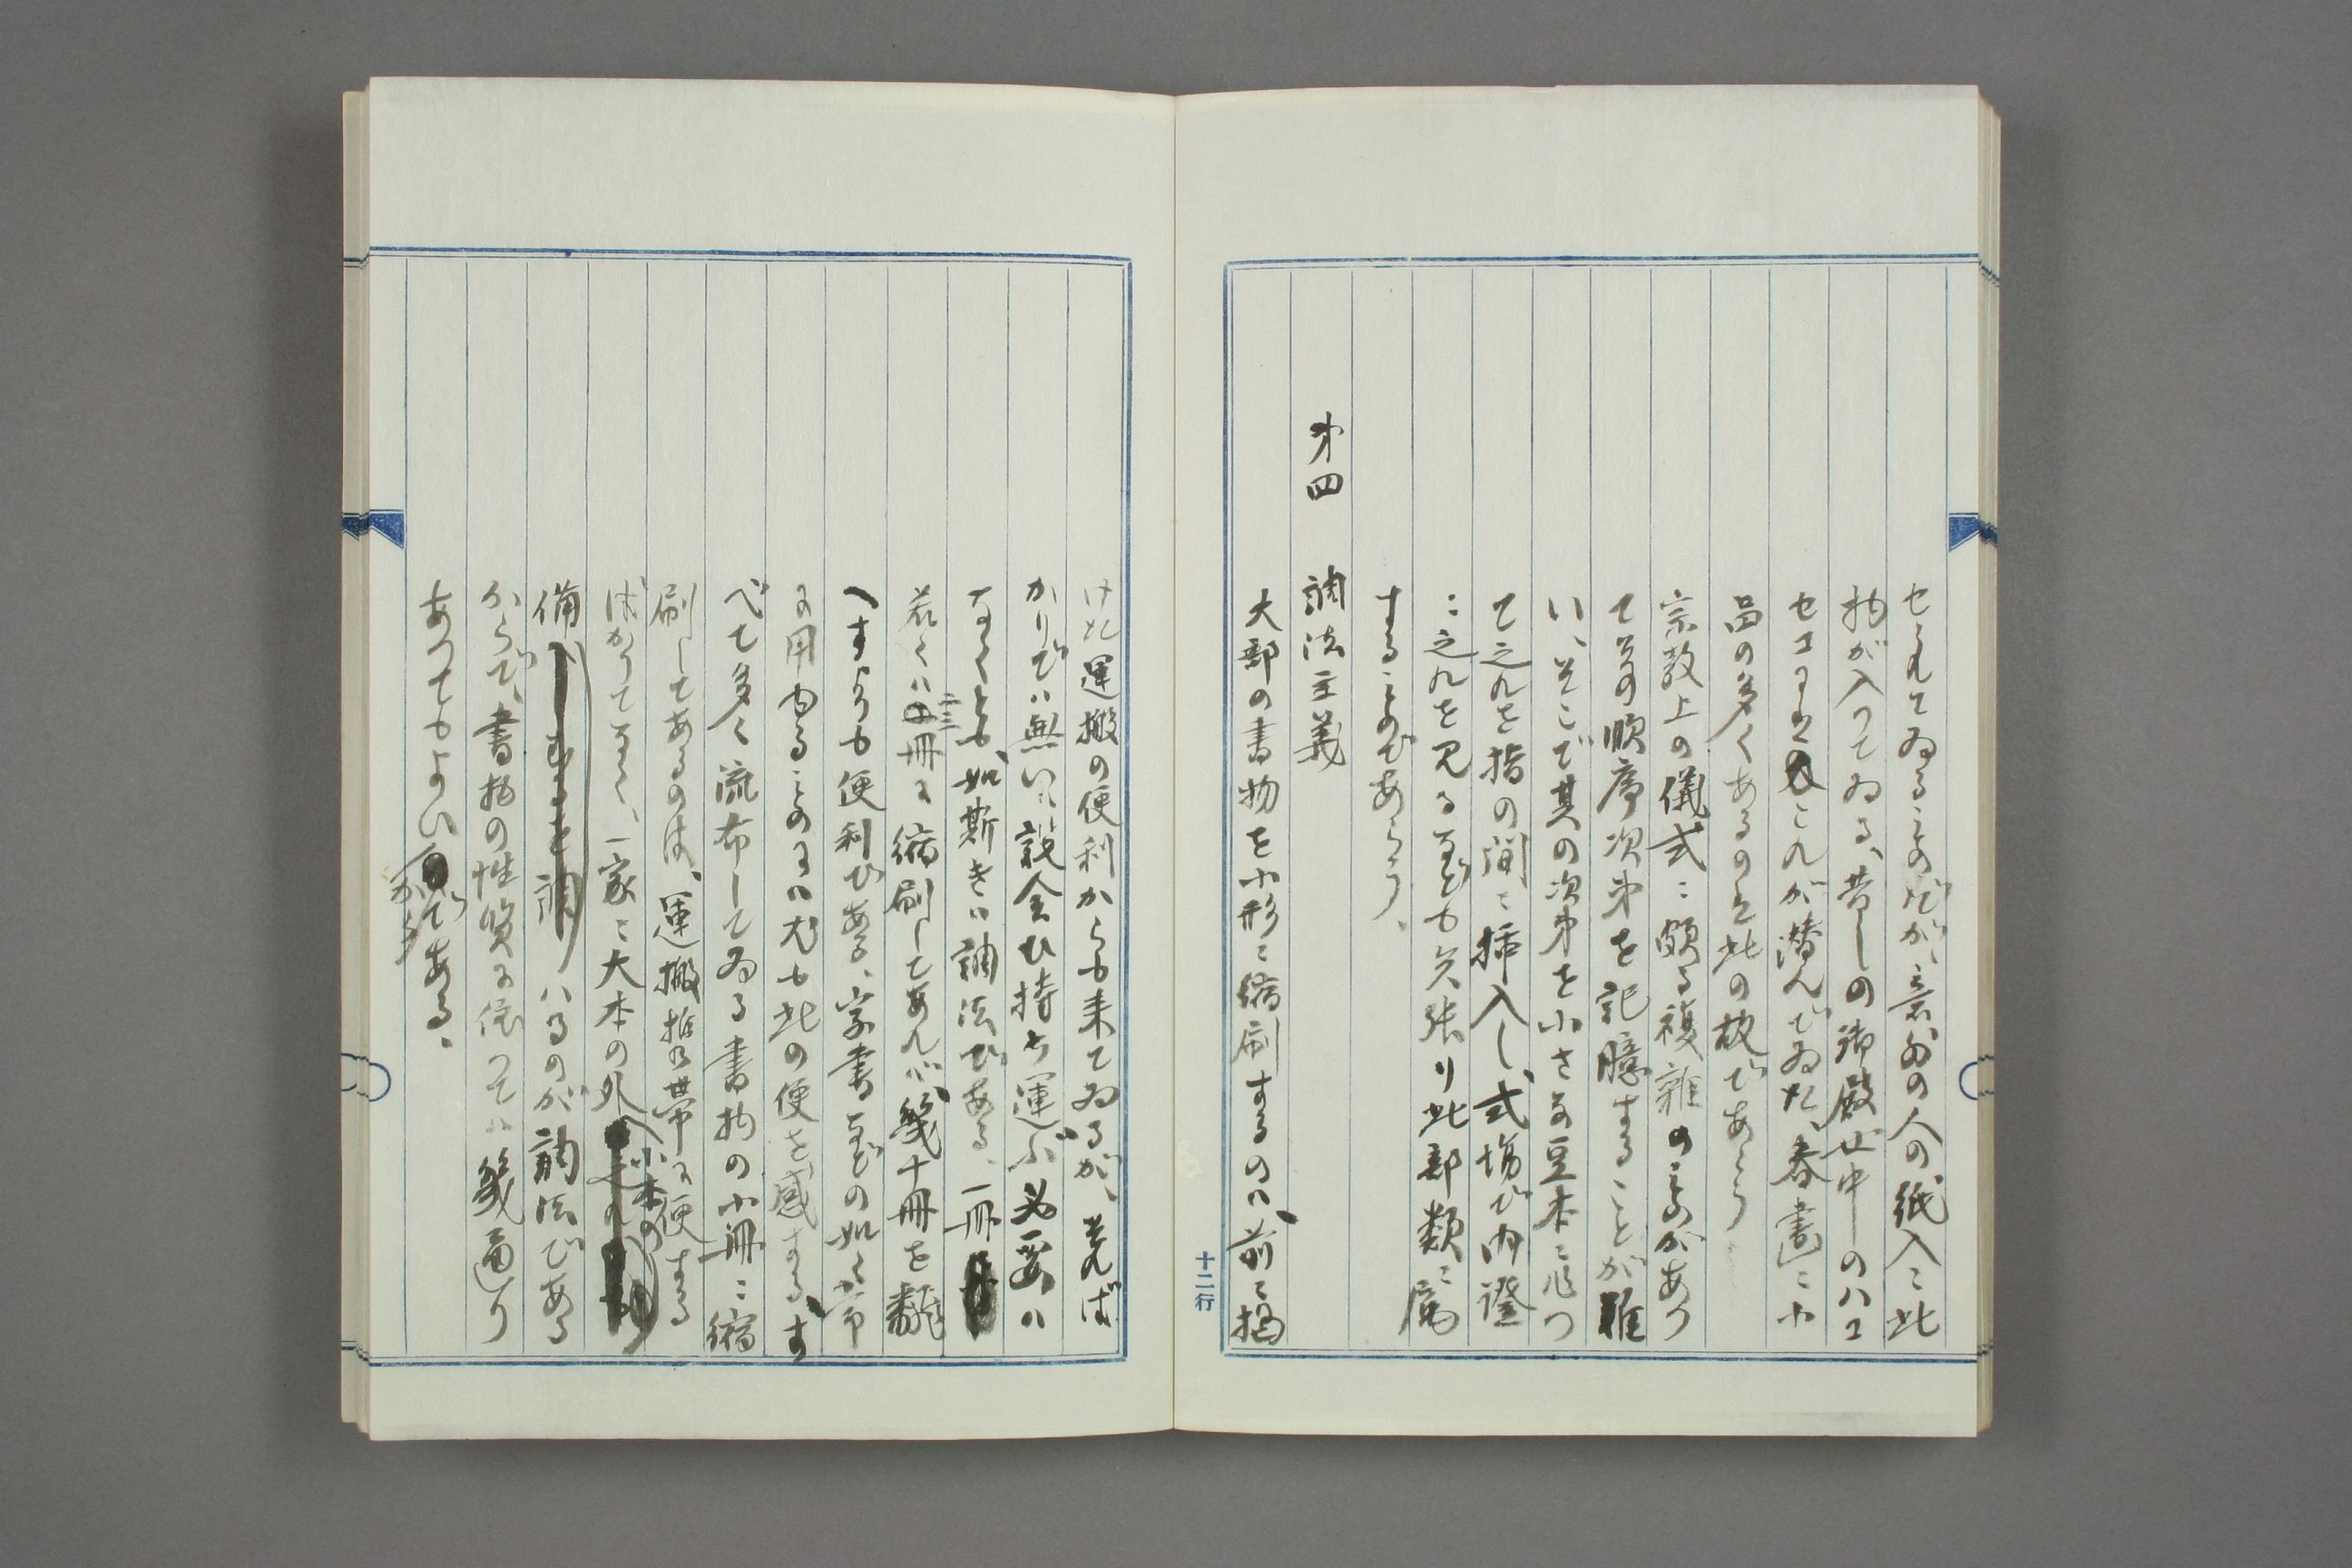 せられてゐることのだが、意外の人の紙入に此
物が入つてゐる、昔しの御殿女中のハコ
セコにはこれが潜んでゐた、春画に小
品の多くあるのは此の故であらう
宗教上の儀式に頗る複雑のものがあつ
て其の順序次第を記臆することが難
い、そこで其の次第を小さな豆本に作つ
て之れを指の間に挿入し、式場で内證
に之れを見るなども矢張り此部類に属
することのであらう、
第四 調法主義
大部の書物を小形に縮刷するのハ、前に掲
けた運搬の便利からも来てゐるが、そればかりでハ無い
設令ひ持ち運ぶ必要ハ
なくとも、如斯きハ調法である、一冊
若くハ二三冊に縮刷してあれバ、幾十冊を飜
へすよりも便利である、字書などの如く常
に用ゐるものにハ尤も此の便を感ずる、す
べて多く流布してゐる書物の小冊に縮
刷してあるのは、運搬携帯に便する
ばかりでなく、一家に大本の外へ小本の
備ハるのが調法である
からで、書物の性質に依つてハ幾通り
あつてもよいからである。
十二行